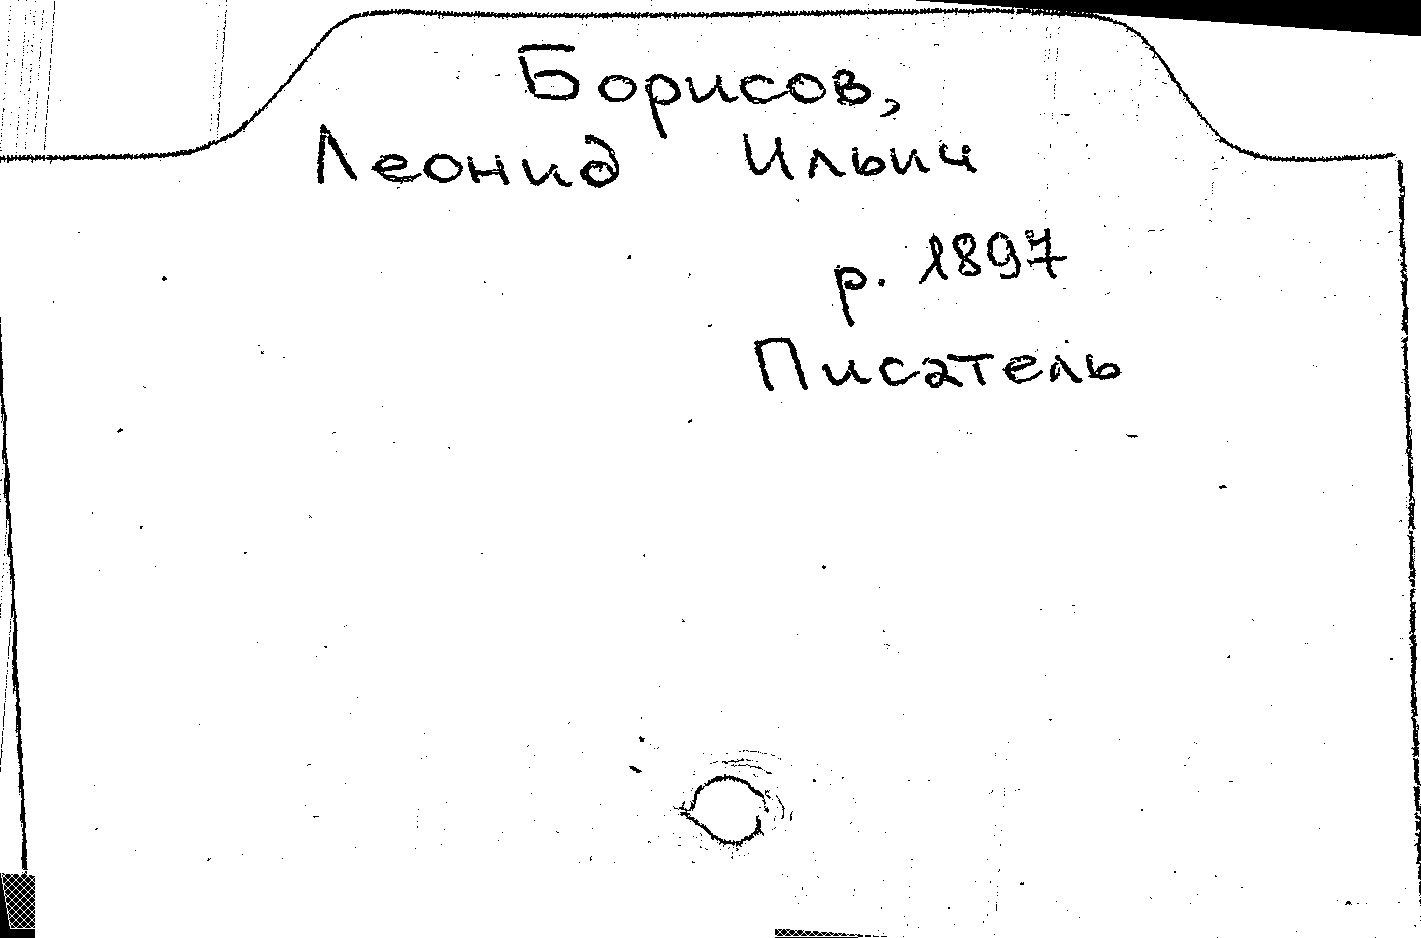 Борисов,
Леонид Ильич
р. 1897
Писатель